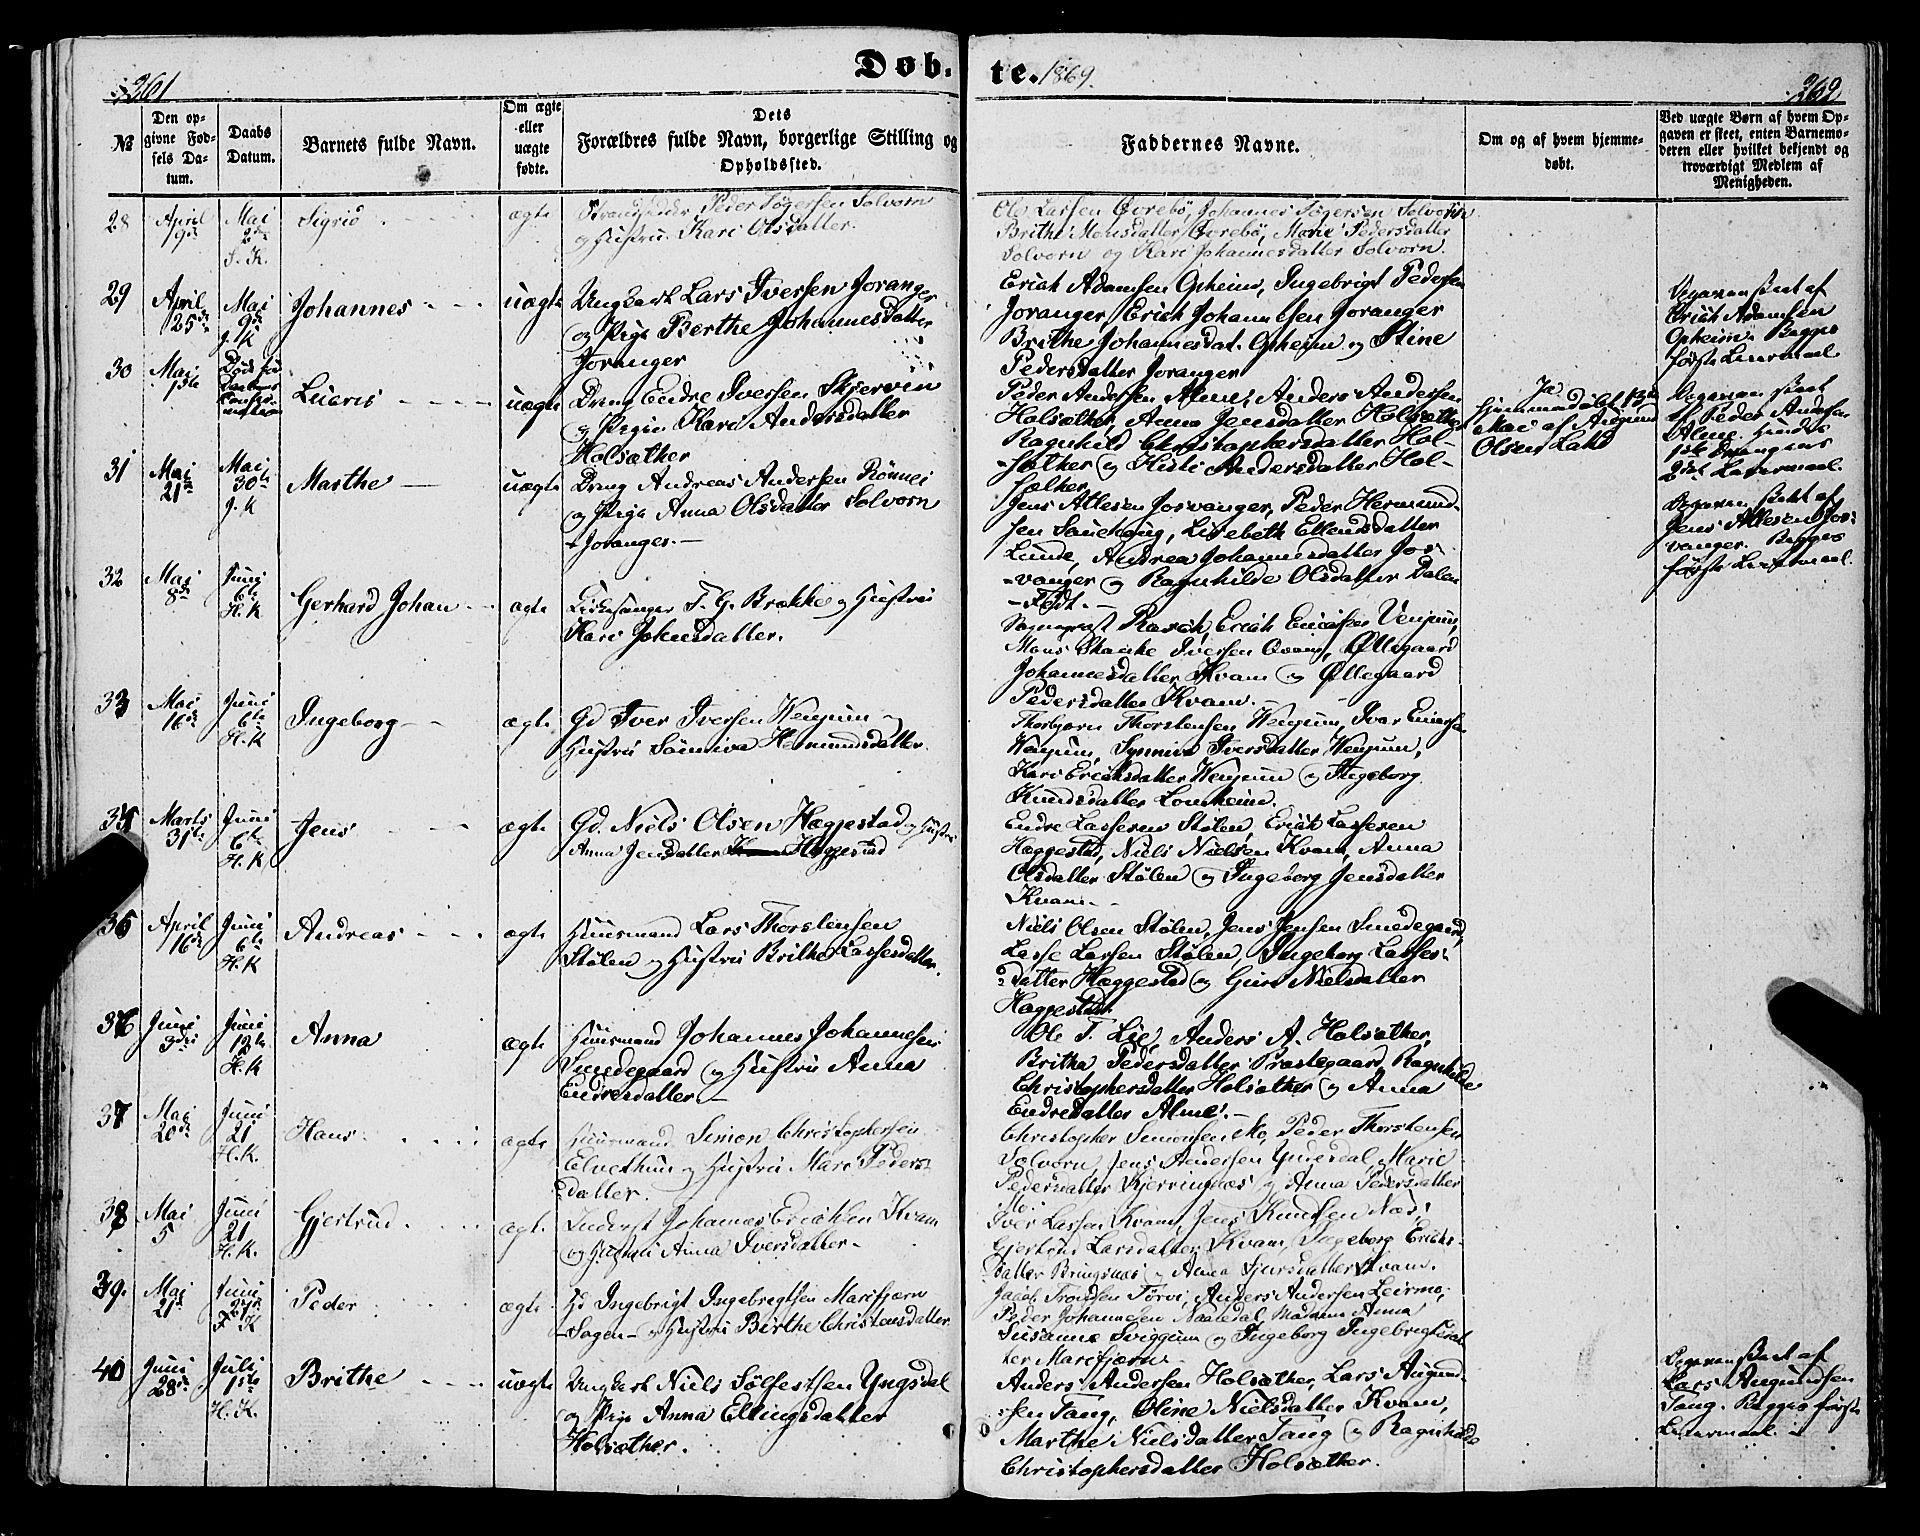 361
Døb-
te. 1869.
262
№
Den op-
givne Fød-
sels Da-
tum.
Daabs
Datum.
Barnets fulde Navn.
Om ægte
eller
uægte
fødte.
Dets
Forældres fulde Navn, borgerlige Stilling og
Opholdssted.
Faddernes Navne.
Om og af hvem hjemme-
døbt.
Ved uægte Børn af hvem Op-
gaven er skeet, enten Barnemo-
deren eller hvilket bekjendt og
troværdigt Medlem af
Menigheden.
28
April
9de
Mai
2den
S. K.
Sigrid
ægte
Strandsidder Peder Tøgersen Solvorn
og Hustru Kari Olsdatter.
Ole Larsen Øvrebö, Johannes Tøgersen Solvorn
Brithe Monsdatter Øvrebö, Marie Pedersdatter
Solvorn og Kari Johannesdatter Solvorn.
29
April
25de
Mai
9de
J. K
Johannes
uægte
Ungkarl Lars Iversen Joranger
og Pige Berthe Johannesdatter
Joranger
Erich Adamsen Opheim, Ingebrigt Pedersen
Joranger, Erich Johannesen Joranger
Brithe Johannesdat. Opheim og Stine
Pedersdatter Joranger
Opgaven skeet af
Erich Adamsen
Opheim. Begges
første Leiermaal
30
Mai
1ste
Leieris
uægte
Dreng Endre Iversen Skjervin
og Pigen Kari Andersdatter
Holsæther
Peder Andersen Alme, Anders Andersen
Holsæther, Anna Jensdatter Holsæther
Ragnhild Christophersdatter Hol-
sæther og Kisti Andersdatter Hol-
sæther
Ja
Hjemmedøbt 13de
Mai af Augund
Olsen Lad
Opgaven skeet
af Peder Andersen
Alme. Hendes
1ste Drengens
2det Leiermaal.
31
Mai
21de
Mai
30te
J. K
Marthe
uægte
Dreng Andreas Andersen Rønnei
og Pige Anna Olsdatter Solvorn
Joranger.
Jens Atlesen Josvanger, Peder Hermund-
sen Sauehaug, Lisebeth Ellendsdatter
Lunde, Andrea Johannesdatter Jos-
vanger og Ragnhilde Olsdatter Dalen
Opgaven skeet af
Jens Atlesen Jos-
vanger. Begges
første Leiermaal.
32
Mai
8de
Juni
6te
H. K
Gerhard Johan
ægte
Kirkesanger T. G. Brække og Hustru
Kari Johnsdatter.
Sognepræst Rasch, Erich Ericksen Venjum,
Mons Skanke Iversen Qvam, Øllegaard
Johannesdatter Kvam og Øllegaard
Pedersdatter Kvam.
33
Mai
16de
Juni
6te
H. K
Ingeborg
ægte
Gd Iver Iversen Wenjum og
Hustru Sönniva Hermundsdatter.
Thorbjørn Thorstensen Wenjum, Ivar Ericsen
Wenjum, Synneva Iversdatter Wenjum,
Kari Erichsdatter Wenjum og Ingeborg
Knudsdatter Lomheim.
35
Marts
31te
Juni
6te
H. K
Jens
ægte
Gd. Niels Olsen Hæggestad og Hustru
Anna Jensdatter Hæggestad
Endre Lassesen Stølen, Erich Lassesen
Hæggestad, Niels Nielsen Kvam, Anna
Olsdatter Stølen og Ingeborg Jensdatter
Kvam
36
April
16de
Juni
6te
H. K
Andreas
ægte
Huusmand Lars Thorstensen
Stølen og Hustru Brithe Lassesdatter.
Niels Olsen Stølen, Jens Jensen Smedegaard,
Lasse Larsen Stølen, Ingeborg Lasses-
datter Hæggestad og Guri Nielsdatter
Hæggestad
36
Juni
3die
Juni
12te
H. K
Anna
ægte
Huusmand Johannes Johannesen
Smedegaard og Hustru Anna
Endresdatter
Ole T. Lie, Anders A. Holsæther,
Britha Pedersdatter Præstegaard, Ragnhilde
Christophersdatter Holsæther og Anna
Endresdatter Alme.
37
Mai
20de
Juni
21
H. K.
Hans
ægte
Huusmand Simon Christophersen
Elvethun og Hustru Mari Peders-
datter.
Christopher Simonsen Mo, Peder Thorstensen
Solvorn, Jens Andersen Yndesdal, Marie
Pedersdatter Kjerringnæs og Anna Pedersdatter
Mo.
38
Mai
5
Juni
21
H. K.
Gjertrud
ægte
Inderst Johannes Erichsen Kvam
og Hustru Anna Iversdatter
Iver Larsen Kvam, Jens Knudsen Næs,
Gjertrud Larsdatter Kvam, Ingeborg Erichs-
datter Bringsnæs og Anna Sjursdatter Kvam.
39.
Mai
21de
Juni
27de
F. K
Peder
ægte
Gd Ingebrigt Ingebrigtsen Marifjæren
Hagen og Hustru Birthe Christensdatter
Jacob Trondsen Tørvi, Anders Andersen Leirmo,
Peder Johannesen Nataldal, Madam Anna
Susanna Sviggum og Ingeborg Ingebrigtsdat-
ter Marifjæren
40
Juni
28de
Juli
1ste
H. K.
Brithe
uægte
Ungkarl Niels Sølfestsen Yngsdal
og Pige Anna Ellingsdatter
Holsæther.
Anders Andersen Holsæther, Lars Augund-
sen Tang, Oline Nielsdatter Kvam,
Marthe Nielsdatter Tang og Ragnhilde
Christophersdatter Holsæther.
Opgaven skeet af
Lars Augundsen
Tang. Begges første
Leiermaal